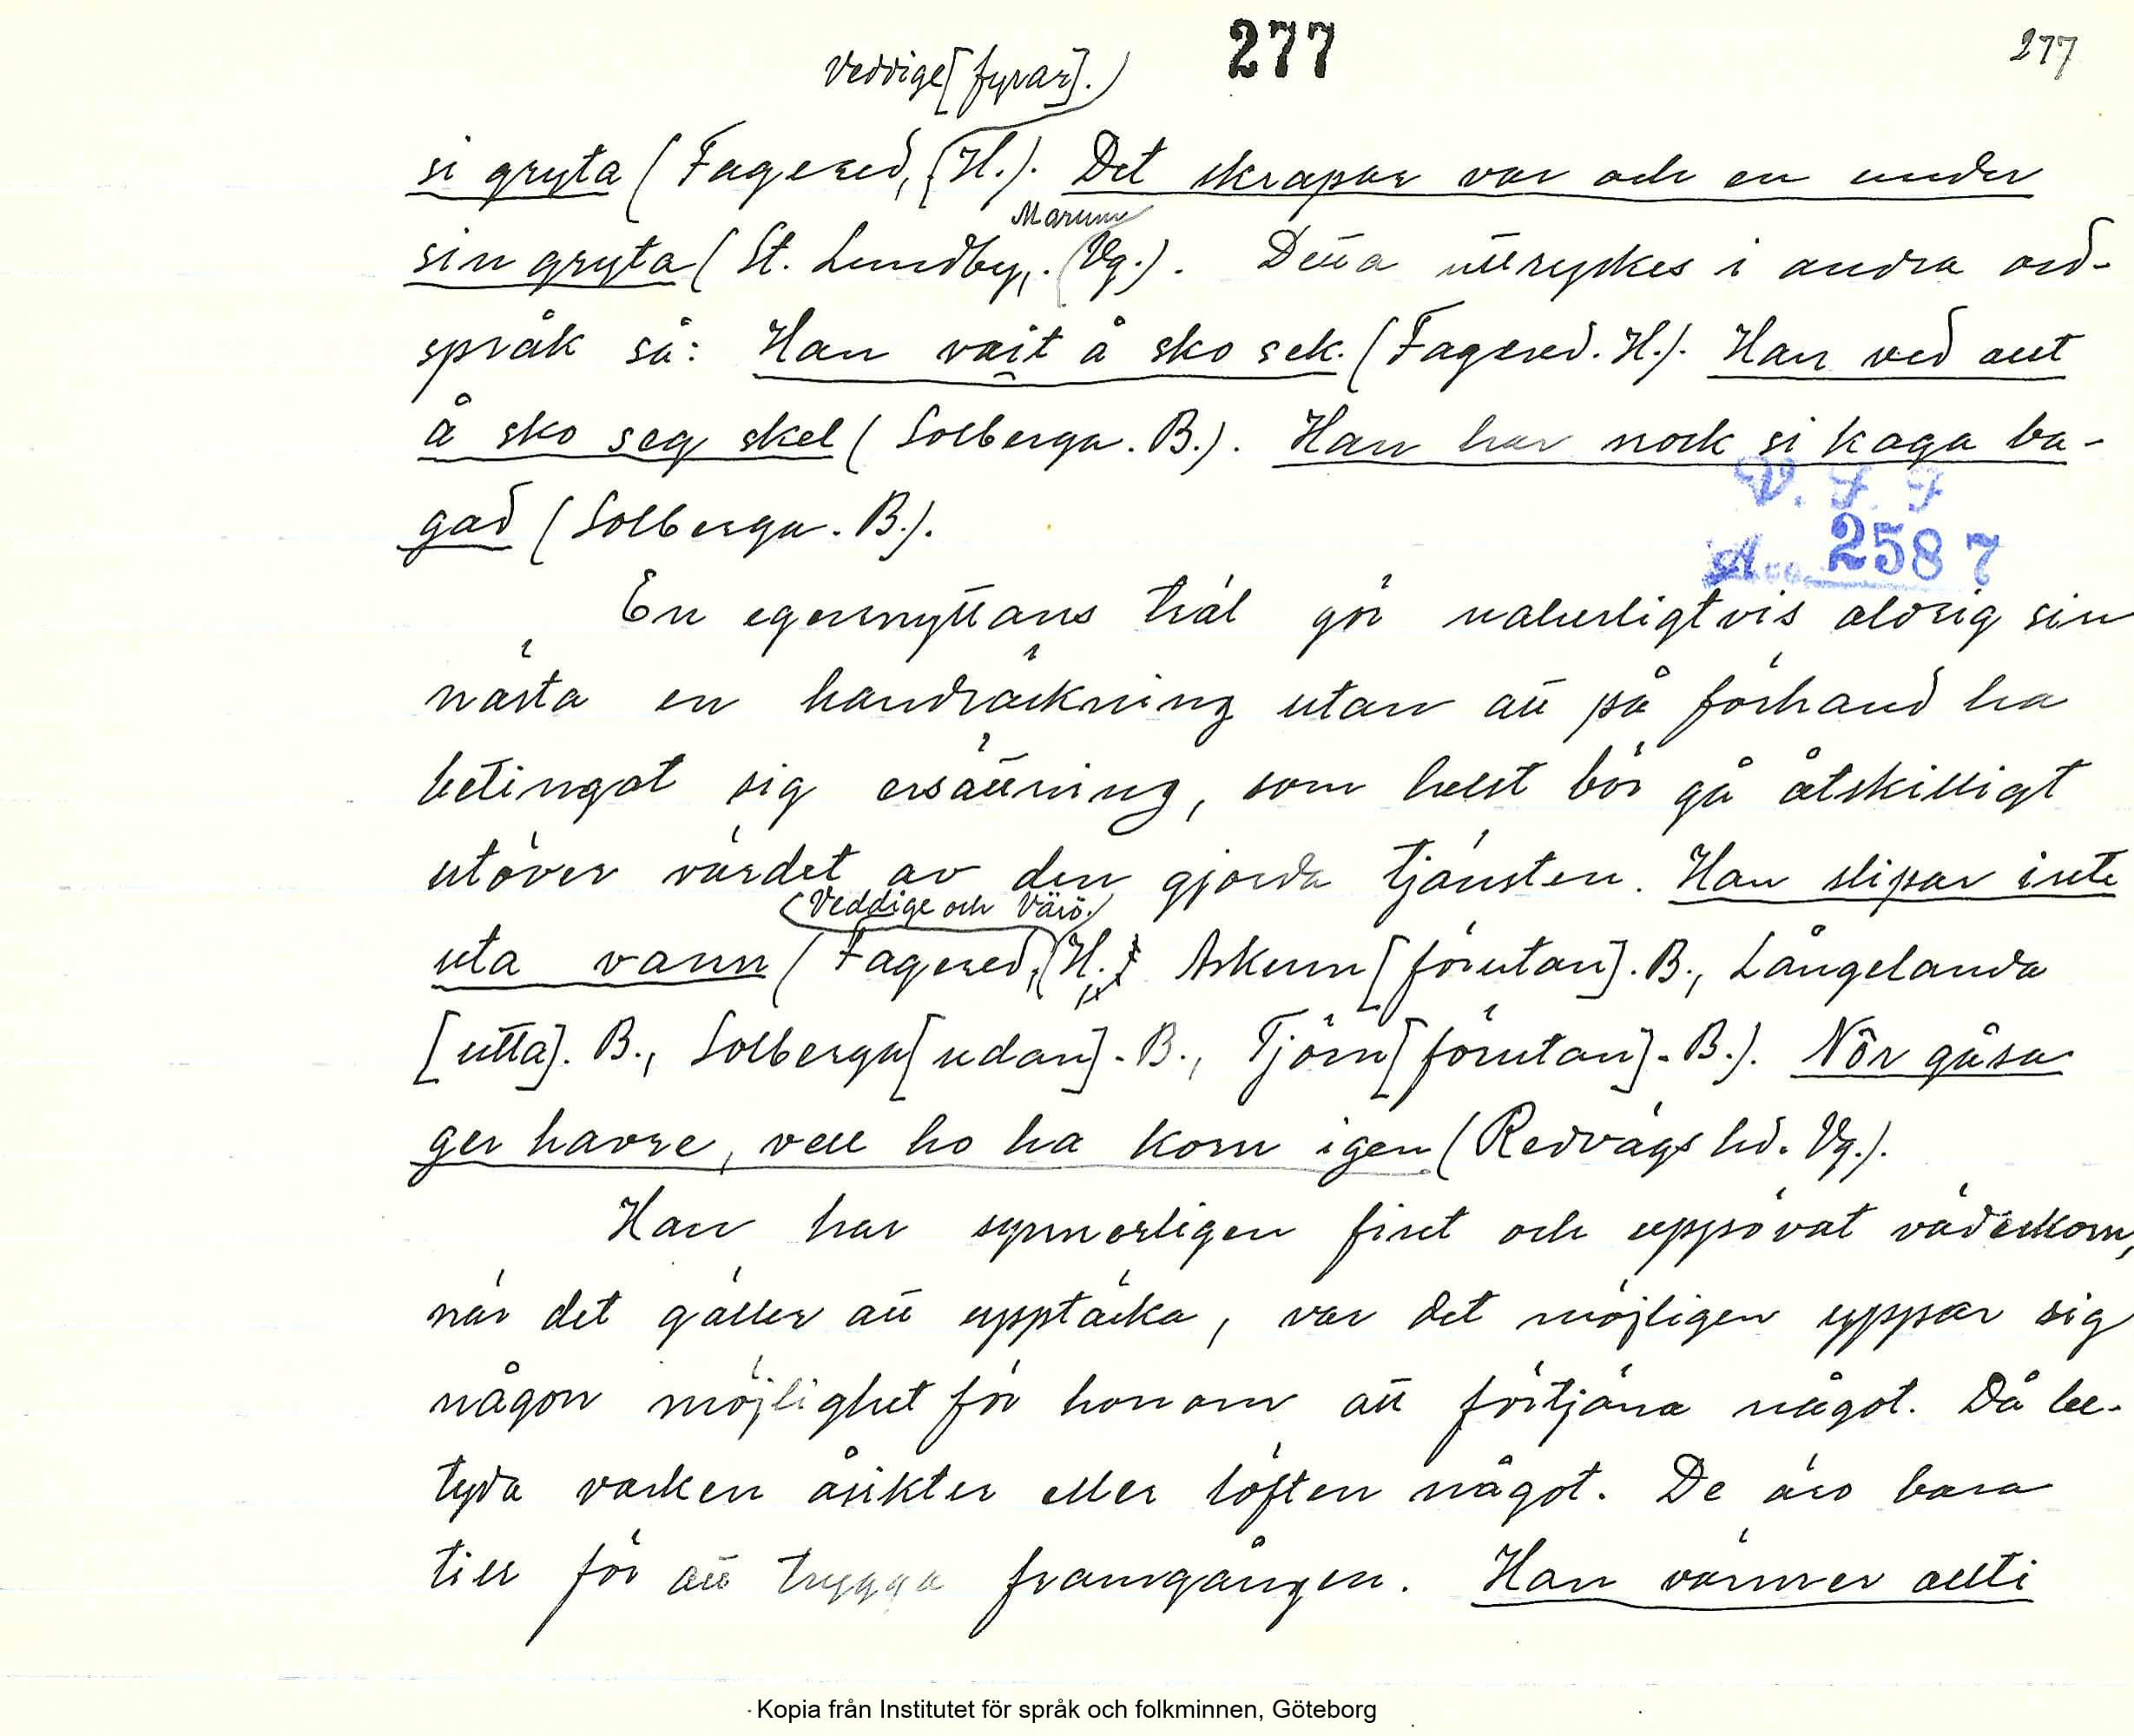 277
277
Veddige [fyrar].)
si gryta (Fagered, (H.). Det skrapar var och en under
Marum
sin gryta (St. Lundby, (Vg.). Detta uttryckes i andra ord-
språk så: Han vait å sko sek. (Fagered. H.). Han ved aut
å sko seg skel (Solberga. B.). Han har nock si kaga ba-
gad (Solberga. B.).
V. F. F
Acc. 2587
En egennyttans träl gör naturligtvis aldrig sin
nästa en handräckning utan att på förhand ha
betingat sig ersättning, som helst bör gå åtskilligt
utöver värdet av den gjorda tjänsten. Han slipar inte
(Veddige och Värö.)
uta vann (Fagered, (H., Askum [förutan]. B., Långelanda
[utta]. B., Solberga [udan]. B., Tjörn [förutan]. B.). Nôr gåsa
ger havre, vell ho ha korn igen (Redvägs hd. Vg.).
Han har synnerligen fint och uppövat väderkorn,
när det gäller att upptäcka, var det möjligen yppar sig
någon möjlighet för honom att förtjäna något. Då be-
tyda varken åsikter eller löften något. De äro bara
till för att trygga framgången. Han vänner allti
Kopia från Institutet för språk och folkminnen, Göteborg